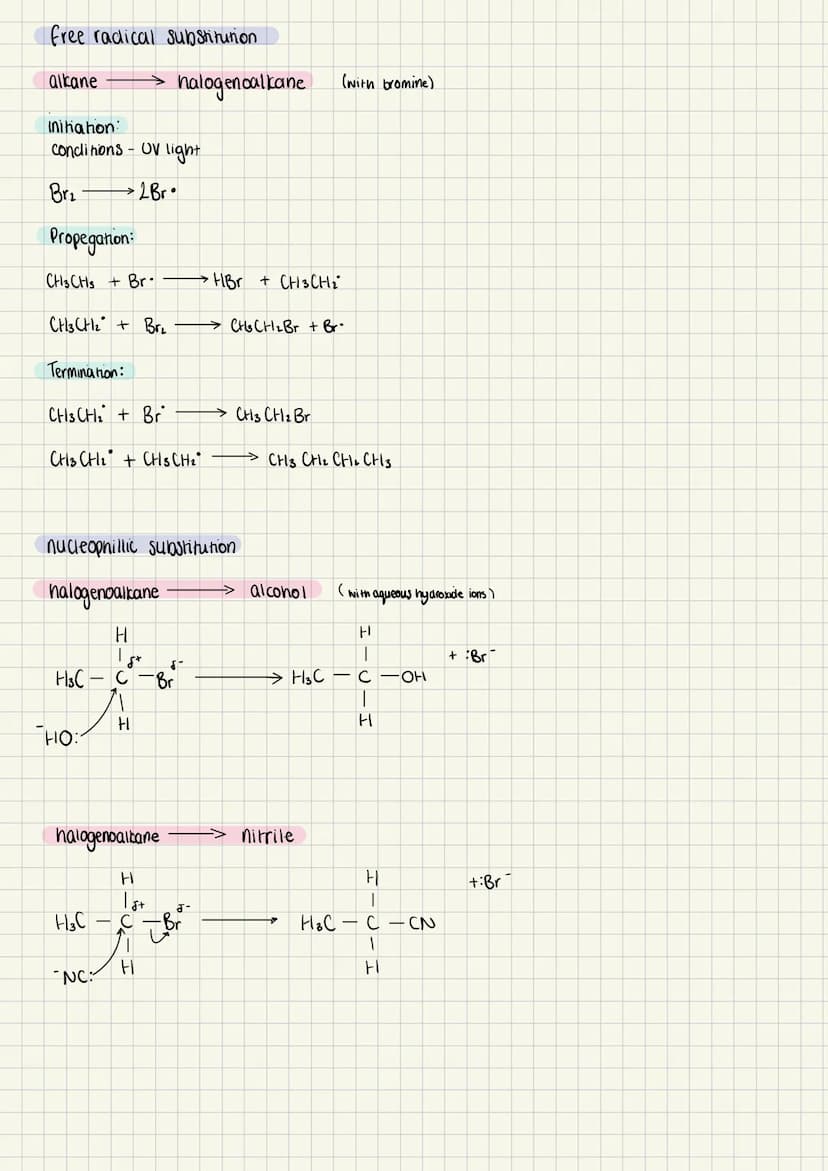 free radical substitution
alkane ⟶ halogenoalkane (with bromine)
initiation:
conditions - UV light
Br₂ ⟶ 2Br•
Propegation:
CH₃CH₃ + Br• ⟶ HBr + CH₃CH₂•
CH₃CH₂• + Br₂ ⟶ CH₃CH₂Br + Br•
Termination:
CH₃CH₂• + Br• ⟶ CH₃CH₂Br
CH₃CH₂• + CH₃CH₂• ⟶ CH₃CH₂CH₂CH₃
nucleophillic substitution
halogenoalkane ⟶ alcohol (with aqueous hydroxide ions)
H H
δ+ δ- + :Br⁻
H₃C – C – Br ⟶ H₃C – C – OH
H H
⁻HO:
halogenoalkane ⟶ nitrile
H H +:Br⁻
δ+ δ-
H₃C – C – Br ⟶ H₃C – C – CN
H H
⁻NC: